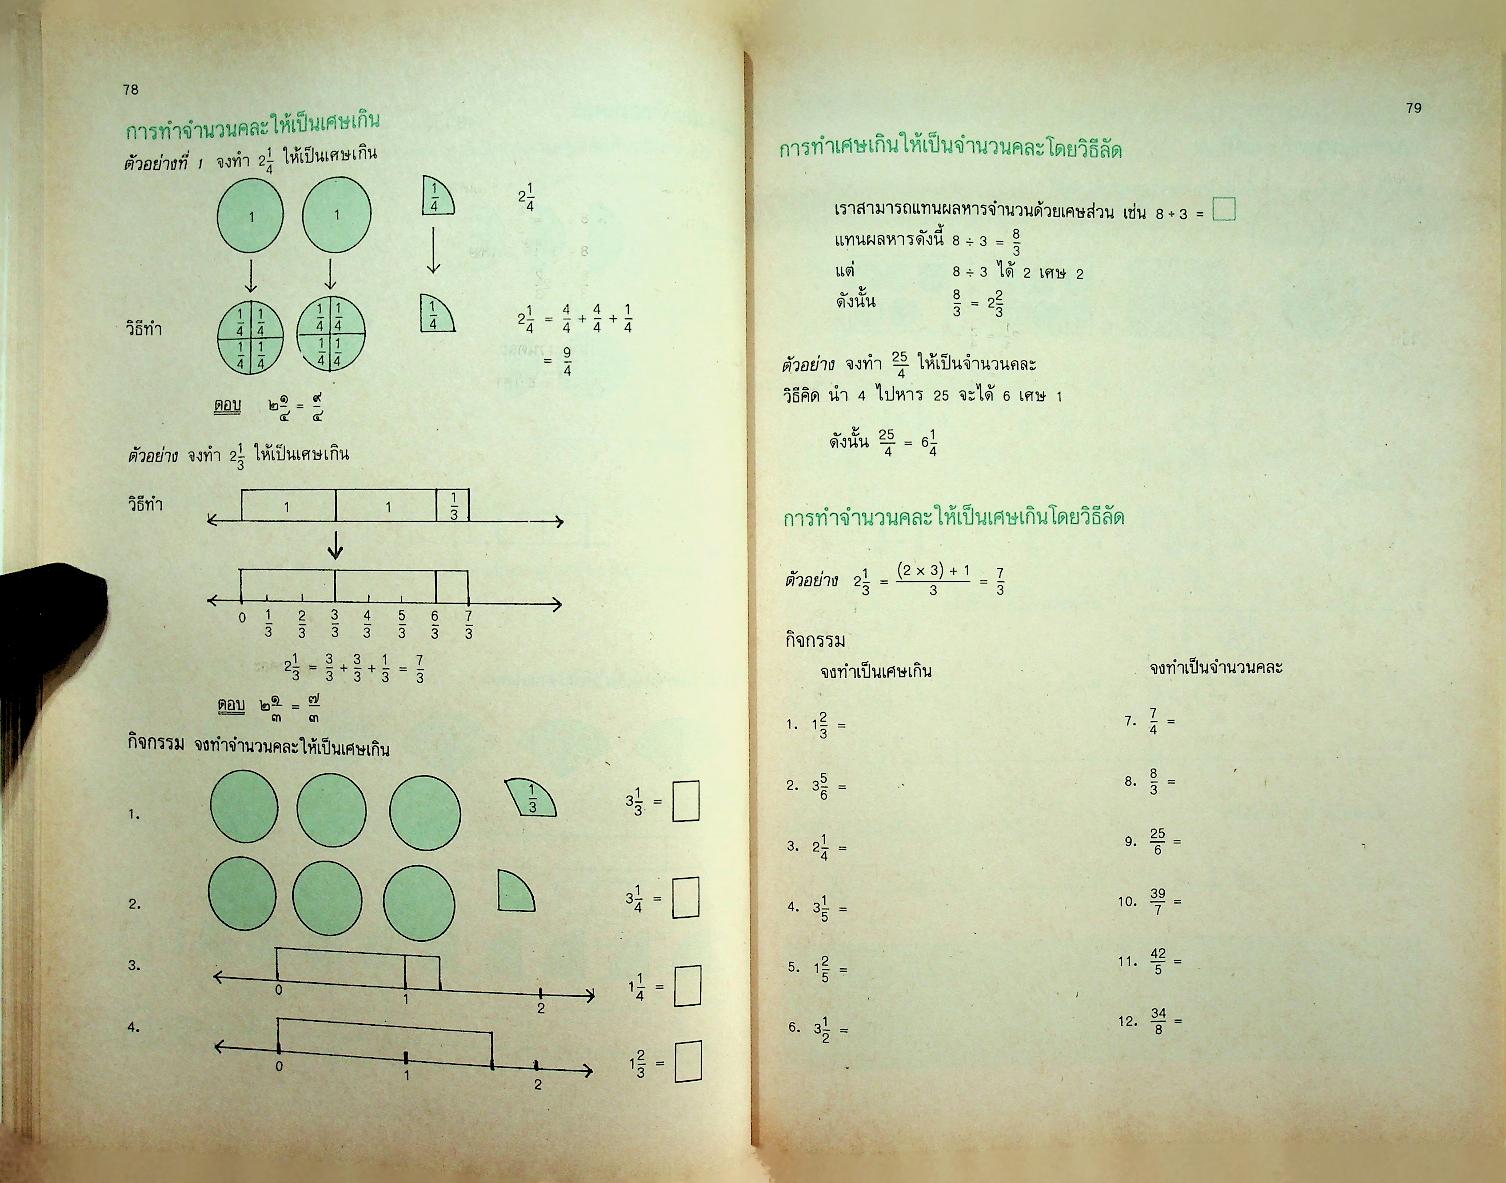 78
การทำจำนวนคละให้เป็นเศษเกิน
ตัวอย่างที่ 1 จงทำ 2 1/4 ให้เป็นเศษเกิน
1 1 1/4 2 1/4
วิธีทำ 1/4 1/4 1/4 1/4 1/4 1/4 1/4 1/4 1/4 2 1/4 = 4/4 + 4/4 + 1/4
= 9/4
ตอบ ๒ ๑/๔ = ๙/๔
ตัวอย่าง จงทำ 2 1/3 ให้เป็นเศษเกิน
วิธีทำ 1 1 1/3
0 1/3 2/3 3/3 4/3 5/3 6/3 7/3
2 1/3 = 3/3 + 3/3 + 1/3 = 7/3
ตอบ ๒ ๑/๓ = ๗/๓
กิจกรรม จงทำจำนวนคละให้เป็นเศษเกิน
1. 1/3 3 1/3 =
2. 3 1/4 =
3. 0 1 2 1 1/4 =
4. 0 1 2 1 2/3 =
79
การทำเศษเกินให้เป็นจำนวนคละโดยวิธีลัด
เราสามารถแทนผลหารจำนวนด้วยเศษส่วน เช่น 8 ÷ 3 =
แทนผลหารดังนี้ 8 ÷ 3 = 8/3
แต่ 8 ÷ 3 ได้ 2 เศษ 2
ดังนั้น 8/3 = 2 2/3
ตัวอย่าง จงทำ 25/4 ให้เป็นจำนวนคละ
วิธีคิด นำ 4 ไปหาร 25 จะได้ 6 เศษ 1
ดังนั้น 25/4 = 6 1/4
การทำจำนวนคละให้เป็นเศษเกินโดยวิธีลัด
ตัวอย่าง 2 1/3 = (2 × 3) + 1/3 = 7/3
กิจกรรม
จงทำเป็นเศษเกิน จงทำเป็นจำนวนคละ
1. 1 2/3 = 7. 7/4 =
2. 3 5/6 = 8. 8/3 =
3. 2 1/4 = 9. 25/6 =
4. 3 1/5 = 10. 39/7 =
5. 1 2/5 = 11. 42/5 =
6. 3 1/2 = 12. 34/8 =